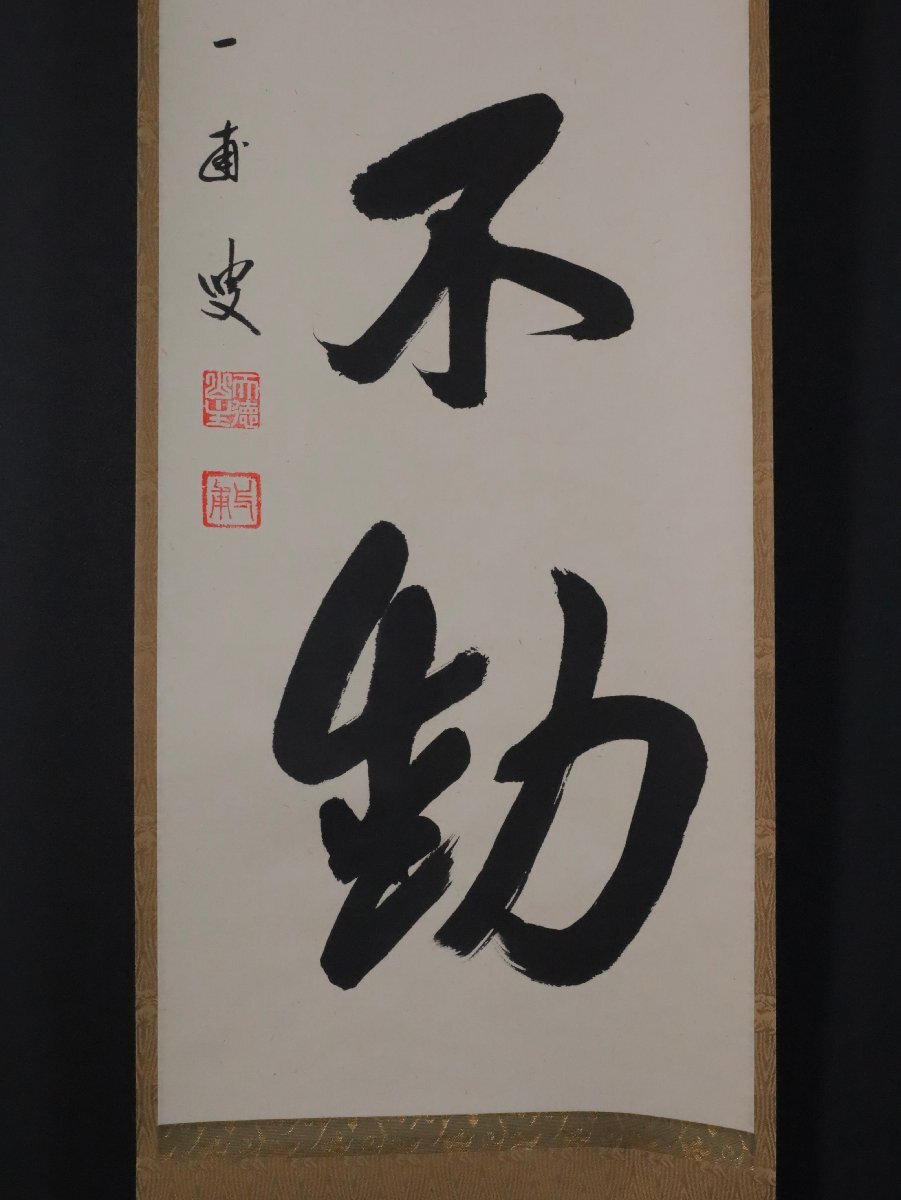 不動
一甫叟